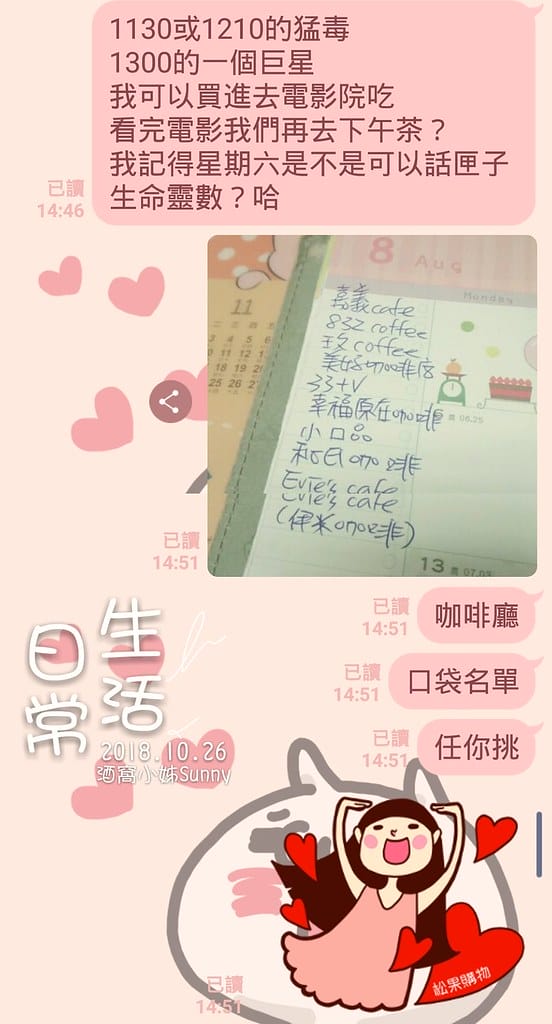 1130或1210的猛毒
1300的一個巨星
我可以買進去電影院吃
看完電影我們再去下午茶？
我記得星期六是不是可以話匣子
生命靈數？哈
已讀
14:46
11
8 Aug
Monday
嘉義cafe
832 coffee
玫coffee
美好咖啡店
33+V
幸福原在咖啡
小口品
Evie's cafe
Evie's cafe
(伊米咖啡)
13
已讀
14:51
咖啡廳
已讀
14:51
口袋名單
已讀
14:51
任你挑
已讀
14:51
生活
日常
2018.10.26
酒窩小姊Sunny
松果購物
已讀
14:51